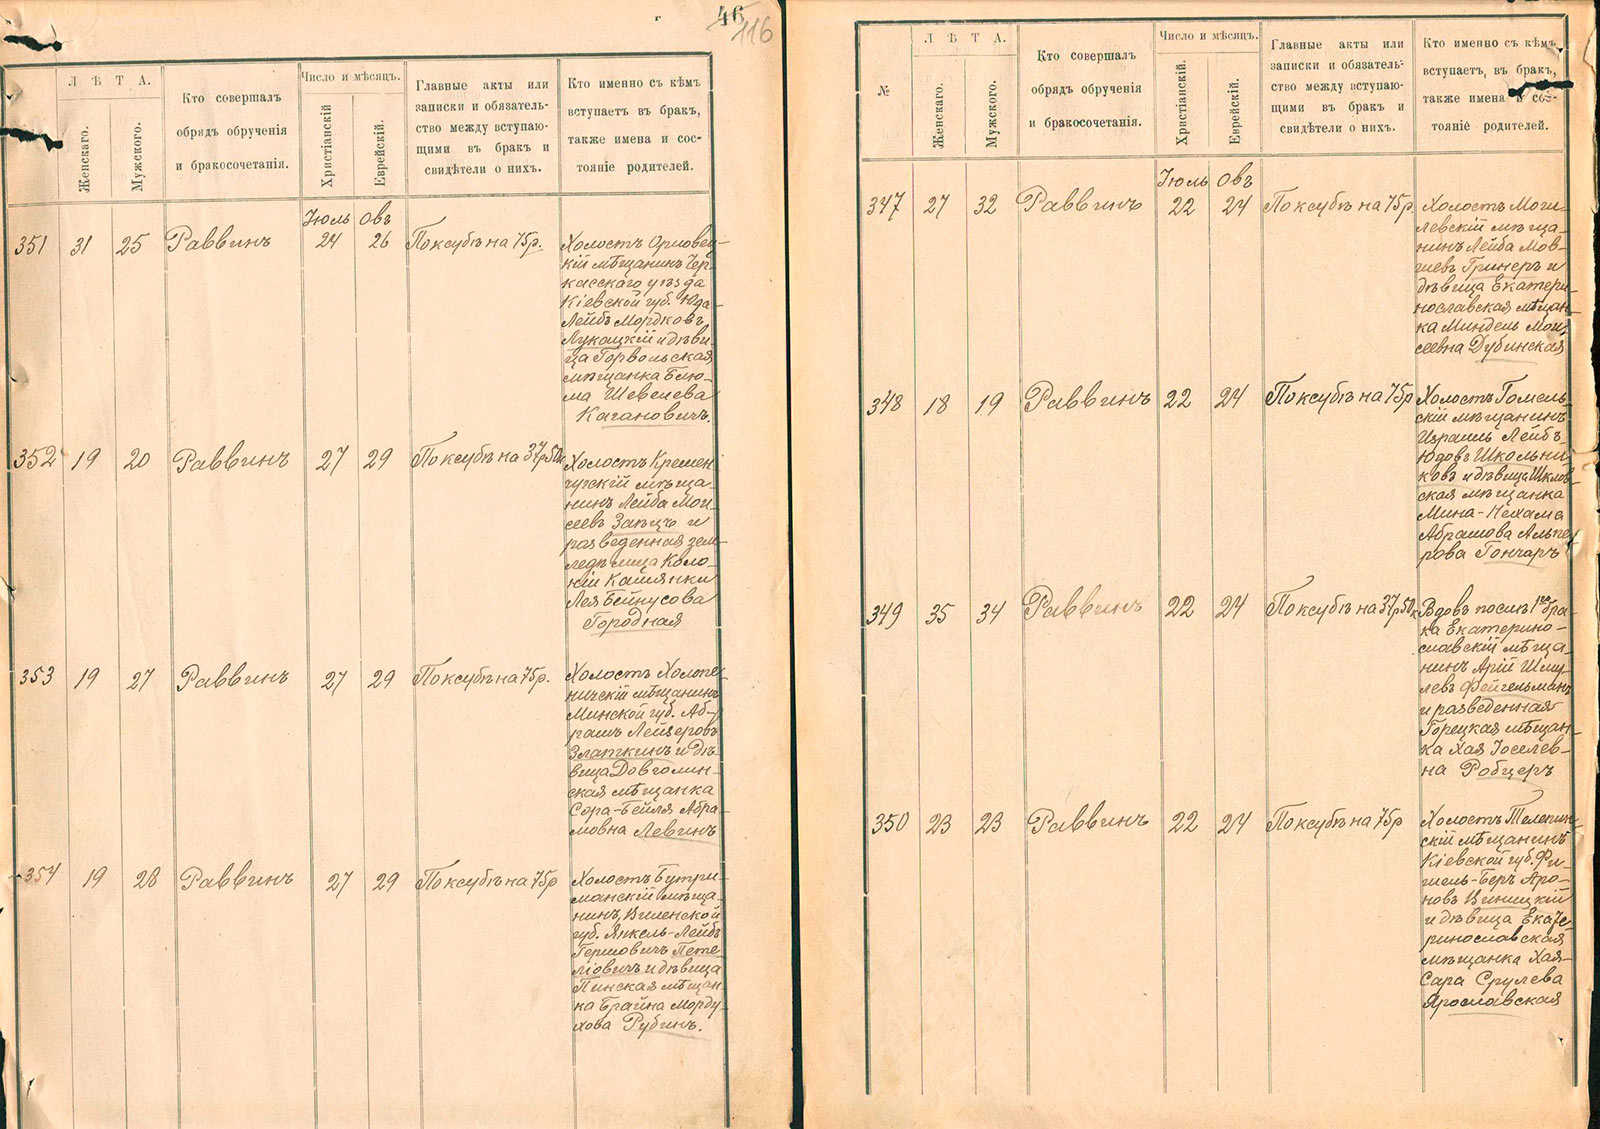 46
116
Л Ѣ Т А.
Женскаго.
Мужского.
Кто совершалъ
обрядъ обрученія
и бракосочетанія.
Число и мѣсяцъ.
Христіанскій
Еврейскій.
Главные акты или
записки и обязатель-
ство между вступаю-
щими въ бракъ и
свидѣтели о нихъ.
Кто именно съ кѣмъ
вступаетъ въ бракъ,
также имена и сос-
тояніе родителей.
Іюль Овъ
351 31 25 Раввинъ 24 26 По ксубѣ на 75р.
Холостъ Орловец-
кій мѣщанинъ Чер-
касскаго уѣзда
Кіевской губ. Юда-
Лейбъ Мордковъ
Лукацкій и дѣви-
ца Горвольская
мѣщанка Блю-
ма Шевелева
Кагановичъ.
352 19 20 Раввинъ 27 29 По ксубѣ на 37р50к
Холостъ Кремен
чугскій мѣща-
нинъ Лейба Мои-
сеевъ Заецъ и
разведенная зем-
ледѣлица Коло-
ніи
Лея Бейнусова
Городная
353 19 27 Раввинъ 27 29 По ксубѣ на 75р.
Холостъ Холопе-
ничскій мѣщанинъ
Минской губ. Аб-
рамъ Лейзеровъ
Златкинъ и дѣ-
вица
ская мѣщанка
Сора-Бейля Абра-
мовна Левинъ
354 19 28 Раввинъ 27 29 По ксубѣ на 75р
Холостъ Бутри-
манскій мѣща-
нинъ, Виленской
губ. Янкель-Лейбъ
Гершовичъ
и дѣвица
Пинская мѣщан
ка Брайна Морду-
хова Рубинъ.
№
Л Ѣ Т А.
Женскаго.
Мужского.
Кто совершалъ
обрядъ обрученія
и бракосочетанія.
Число и мѣсяцъ.
Христіанскій.
Еврейскій.
Главные акты или
записки и обязатель-
ство между вступаю-
щими въ бракъ и
свидѣтели о нихъ.
Кто именно съ кѣмъ
вступаетъ, въ бракъ,
также имена и сос-
тояніе родителей.
Іюль Овъ
347 27 32 Раввинъ 22 24 По ксубѣ на 75р.
Холостъ Моги-
левскій мѣща-
нинъ Лейба Мов-
шевъ Гринеръ и
дѣвица Екатери-
нославская мѣщан-
ка Миндель Мои-
сеевна Дубинская
348 18 19 Раввинъ 22 24 По ксубѣ на 75р
Холостъ Гомель-
скій мѣщанинъ
Израиль Лейбъ-
Юдовъ Школьни-
ковъ и дѣвица Шклов-
ская мѣщанка
Мина-Нехама
Абрамова Альпе-
рова Гончаръ
349 35 34 Раввинъ 22 24 По ксубѣ на 37р50к
Вдовъ послѣ 1го бра-
ка Екатерино-
славскій мѣща-
нинъ Арій Шму-
левъ Фейгельманъ
и разведенная
Горецкая мѣщан-
ка Хая Іоселев-
на Робцеръ
350 23 23 Раввинъ 22 24 По ксубѣ на 75р
Холостъ
скій мѣщанинъ
Кіевской губ. Фи-
шель-Беръ Аро-
новъ Виницкій
и дѣвица Екате-
ринославская
мѣщанка Хая-
Сара Срулева
Ярославская